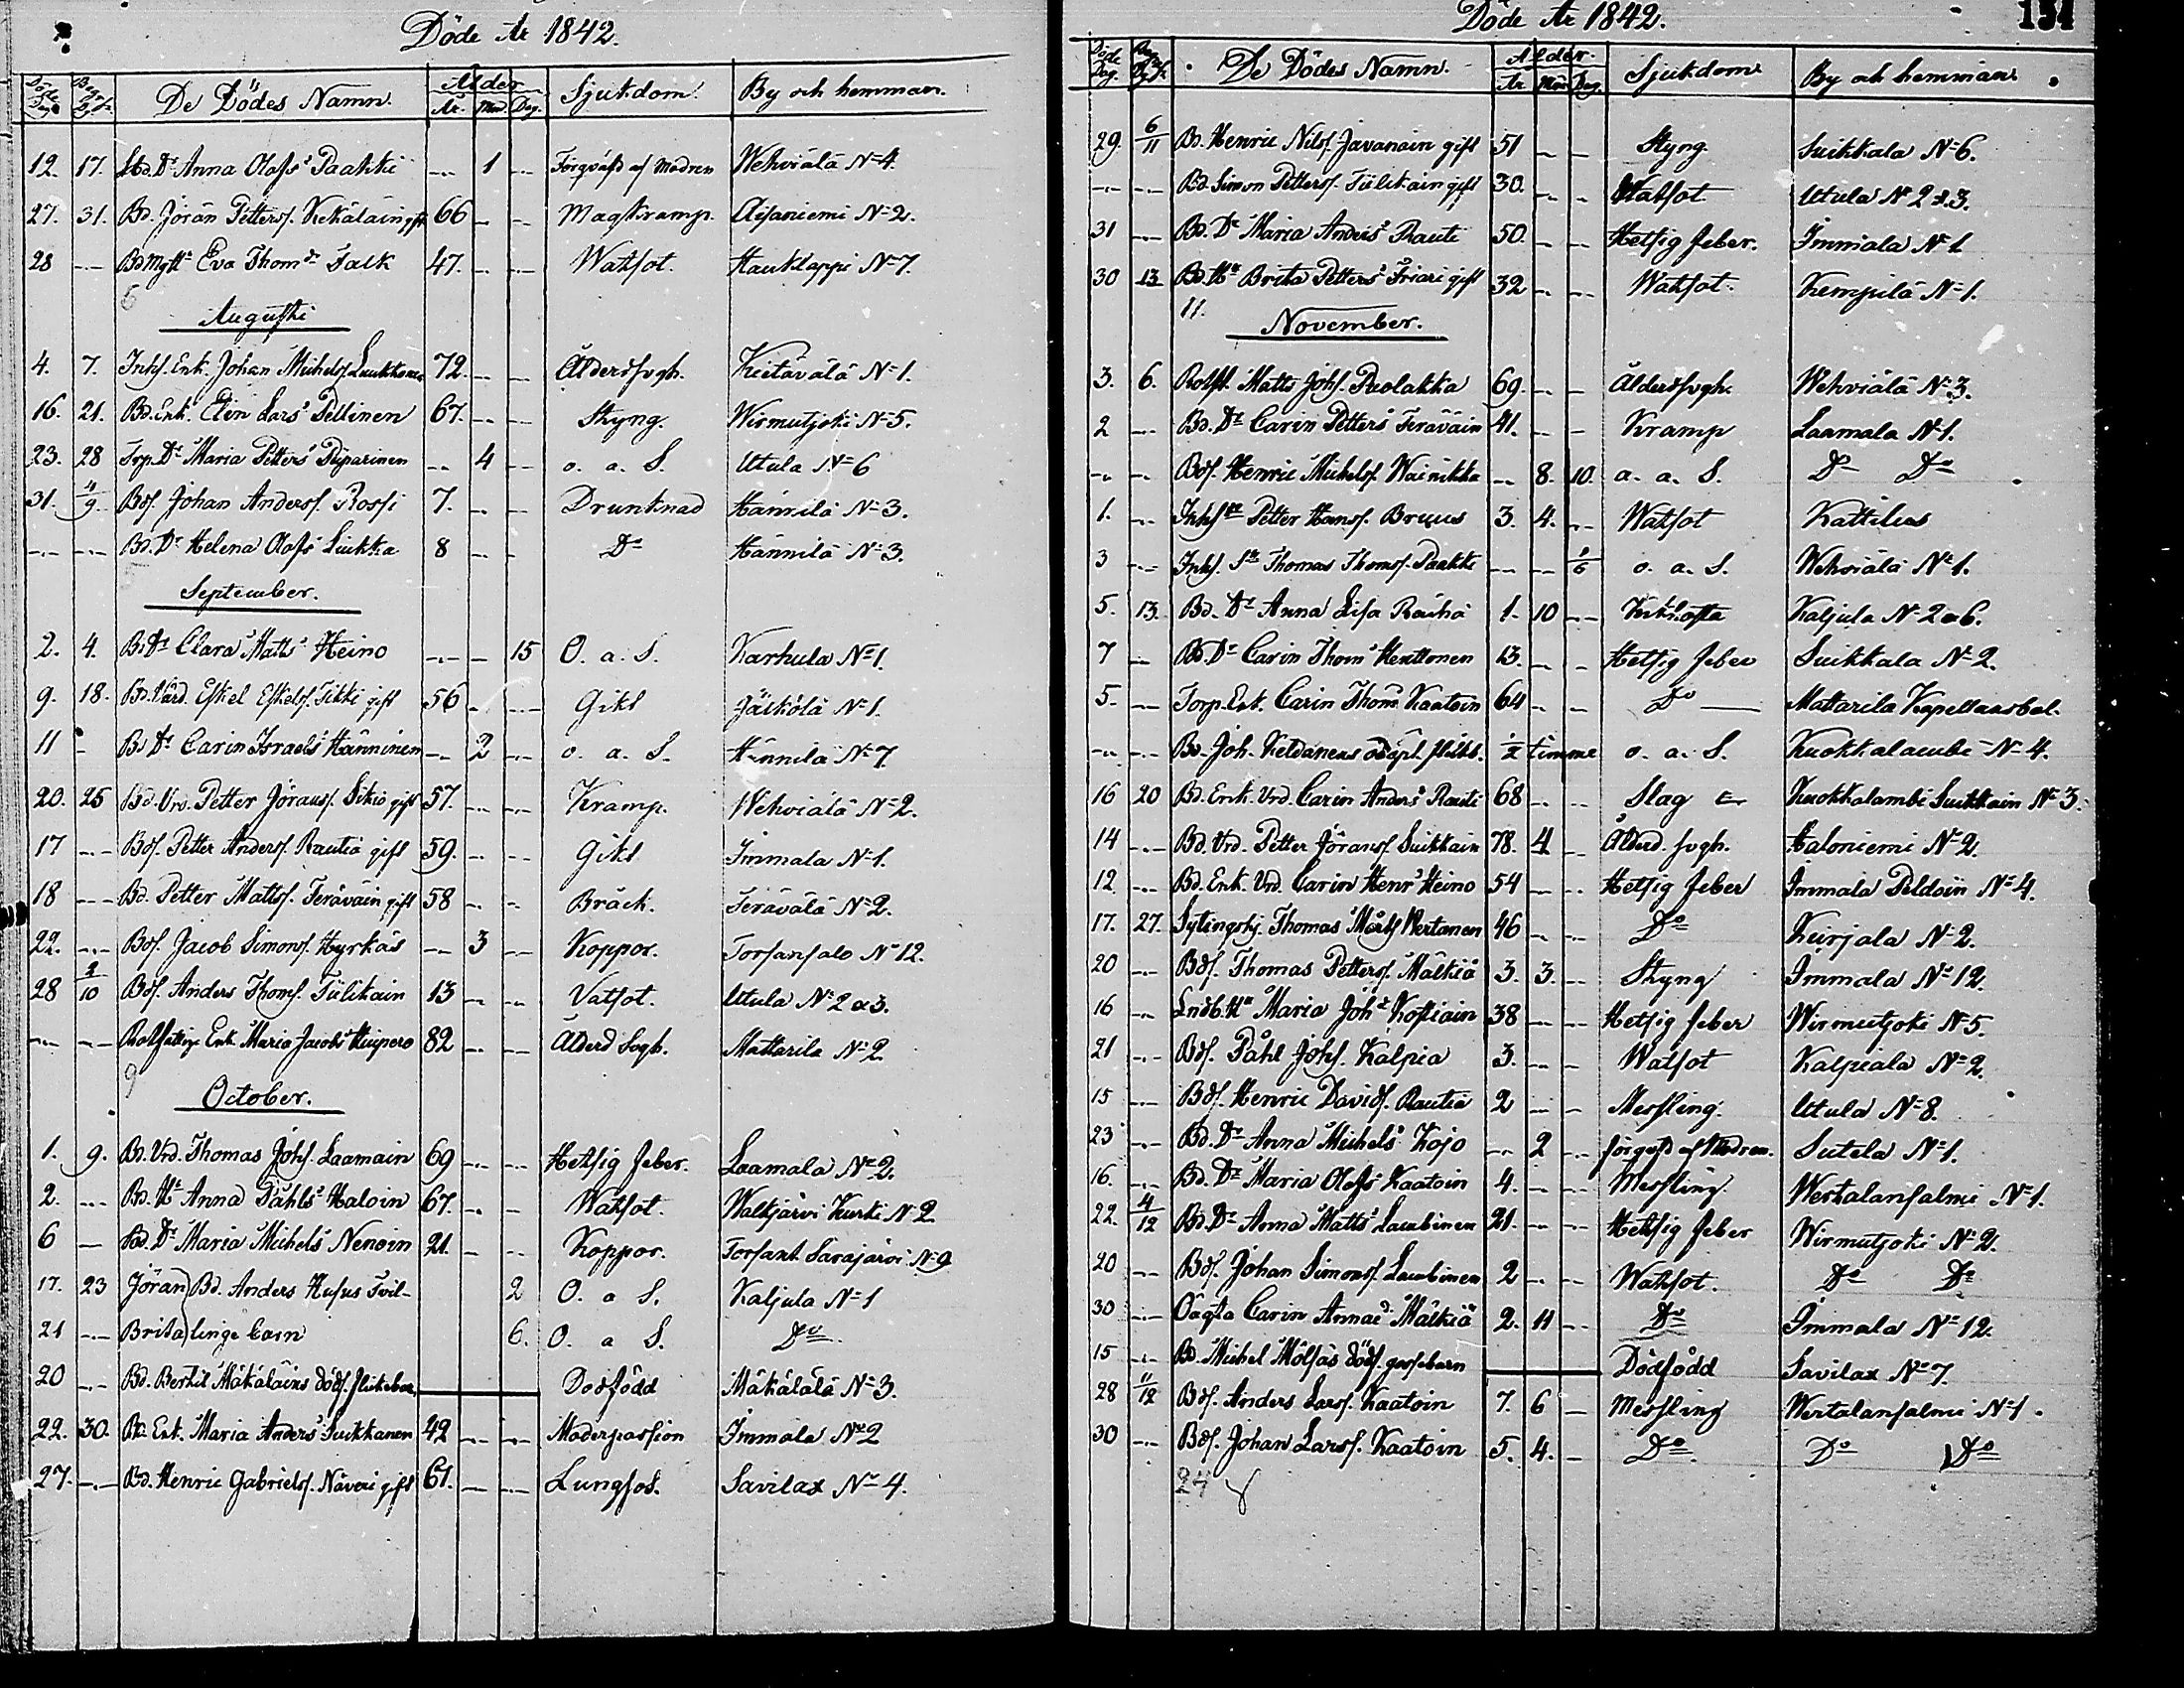 Döde År 1842.
Döde Dag Begr. Dag De Dödes Namn. Ålder År. Mån. Dag. Sjukdom. By och hemman.
12. 17. Anna Olofs Paakki -- 1 -- Förqväfd af modren Wehviälä N=4.
27. 31. Bd. Jöran Petters. Kekäläin gift 66 -- -- Magkramp. Aijaniemi N=2.
28 --- Eva Thom Falk 47. -- -- Watsot. Hauklappi N=7.
6
Augusti
4. 7. Inhs. Enk. Johan Michels. Laukkanen 72. -- -- Åldersvgh. Kietävälä N=1.
16. 21. Bd. Enk. Elin Lars Pellinen 67. -- -- Styng. Wirmutjoki N=5.
23. 28 Trp. Dr Maria Petters Pyparinen -- 4 -- o. a. S. Utula N=6
31. 11/9 Bds. Johan Anders. Rossi 7. -- -- Drunknad Hännilä N=3.
--- --- Bd. Dr Helena Olofs Liukka 8 -- - Do Hännilä N=3.
September.
2. 4. Bd Dr Clara Matts Heino -- - 15 O. a. S. Karhula N=1.
9. 18. Bd. Vård. Eskel Eskels. Tikki gift 56 - -- Gikt Jäskölä N=1.
11 - Bd Dr Carin Israels Hänninen -- 2 -- o. a. S. Hännilä N=7.
20. 25 Bd. Vrd. Petter Jörans. Sikiö gift 57. -- -- Kramp. Wehviälä N=2.
17 --- Bds. Petter Anders. Rautia gift 59. -- -- Gikt Immala N=1.
18 --- Bd. Petter Matts. Teräväin gift 58 -- - Bråck. Terävälä N=2.
22. --- Bds. Jacob Simons. Hyrkäs -- 3 -- Koppor. Torsansalo N=12.
28 2/10 Bds. Anders Thoms. Tiilikain 13 -- -- Vatsot. Utula N=2 & 3.
--- --- Enk. Maria Jacobs Kuipero 82 -- -- Ålderd Svgh. Mattarila N=2
9
October.
1. 9. Bd. Vrd. Thomas Johs. Laamain 69 -- -- Hetsig feber. Laamala N=2.
2. --- Bd. Hu Anna Påhls Haloin 67. -- - Watsot. Walkjärvi Kurki N=2
6 -- Bd. Dr Maria Michels Nenoin 21. - -- Koppor. Torsans. Sarajärvi N=9
17. 23 Jöran Bd. Anders Hufus Tvil- 2 O. a S. Kaljula N=1
21 --- Brita linge barn 6. O. a S. Do
20 --- Bd. Bertil Mäkäläins dödf. flickebarn Dödfödd Mäkälälä N=3.
22. 30. Bd. Enk. Maria Anders Suikkanen 42 -- -- Moderpassion Immala N=2
27. --- Bd. Henric Gabriels. Näveri gift 61. -- -- Lungsot. Savilax N=4.
Döde År 1842. 134
Döde Dag. Begr. Dag De Dödes Namn. Ålder. År Mån Dag Sjukdom By och hemman.
29. 6/11 Bd. Henric Nils. Javanain gift 51 -- -- Styng Suikkala N=6.
--- --- Bd. Simon Petters. Tiilikain gift 30. -- - Watsot Utula N=2 & 3.
31 --- Bd. Dr Maria Anders Rauti 50. -- - Hetsig feber. Immala N=1
30 13 Bd. Hu Brita Petters Friari gift 32 -- -- Watsot. Kempilä N=1.
11.
November.
3. 6. Matts Johs. Puolakka 69. -- - Åldersvgh. Wehviälä N=3.
2 --- Bd. Dr Carin Petters Teräväin 41. -- - Kramp Laamala N=1.
--- --- Bds. Henric Michels. Wainikka -- 8. 10. a. a. S. Do Do
1. --- Petter Hans. Bruus 3. 4. -- Watsot Kattilus
3 --- Inhs. Sn Thomas Thoms. Paakki -- -- 1/6 o. a. S. Wehviälä N=1.
5. 13. Bd. Dr Anna Lisa Raiha 1. 10 -- Kikhosta Kaljula N=2 & 6.
7 -- Bd. Dr Carin Thom Henttonen 13. -- - Hetsig feber Suikkala N=2.
5. -- Torp. Enk. Carin Thoms Kaatoin 64 -- - Do -- Mattarila Kapellansbol.
--- --- Bd. Joh. Keldanens odöpt flickb. 1/2 timme o. a. S. Kuokkalambi N=4.
16 20 Bd. Enk. Vrd. Carin Anders Rauti 68 -- -- Slag Kuokkalambi Suikkain N=3.
14 --- Bd. Vrd. Petter Jörans. Suikkain 78. 4 -- Ålderd. svgh. Haloniemi N=2.
12 --- Bd. Enk. Vrd. Carin Henrs Heino 54 -- -- Hetsig feber Immala Peldoin N=4.
17. 27. Sytingshj. Thomas Mårts Wertanen 46 -- -- Do Keirjala N=2.
20 --- Bds. Thomas Petters. Mälkiä 3. 3. -- Styng Immala N=12.
16 -- Lndb. Hu Maria Joh Kostiain 38 -- -- Hetsig feber Wirmutjoki N=5.
21 --- Bds. Påhl Johs. Kalpia 3. -- -- Watsot Kalpiala N=2.
15 --- Bds. Henric Davids. Rautia 2 -- - Messling. Utula N=8.
23 --- Bd. Dr Anna Michels Kojo -- 2 -- förqvfd af Modren. Sutela N=1.
16. --- Bd. Dr Maria Olofs Kaatoin 4. -- -- Messling. Wertalansalmi N=1.
22. 4/12 Bd. Dr Anna Matts Laubinen 21. -- - Hetsig feber Wirmutjoki N=2.
20 --- Bds. Johan Simons. Laubinen 2 -- -- Watsot. Do Do
30 --- Oägta Carin Annae Mälkiä 2. 11 -- Do Immala N=12.
15 --- Bd. Michel Mölsäs dödf. gossebarn Dödfödd Savilax N=7.
28 11/12 Bds. Anders Lars. Kaatoin 7. 6 -- Messling Wertalansalmi N=1.
30 --- Bds. Johan Lars. Kaatoin 5. 4. -- Do Do Do
24